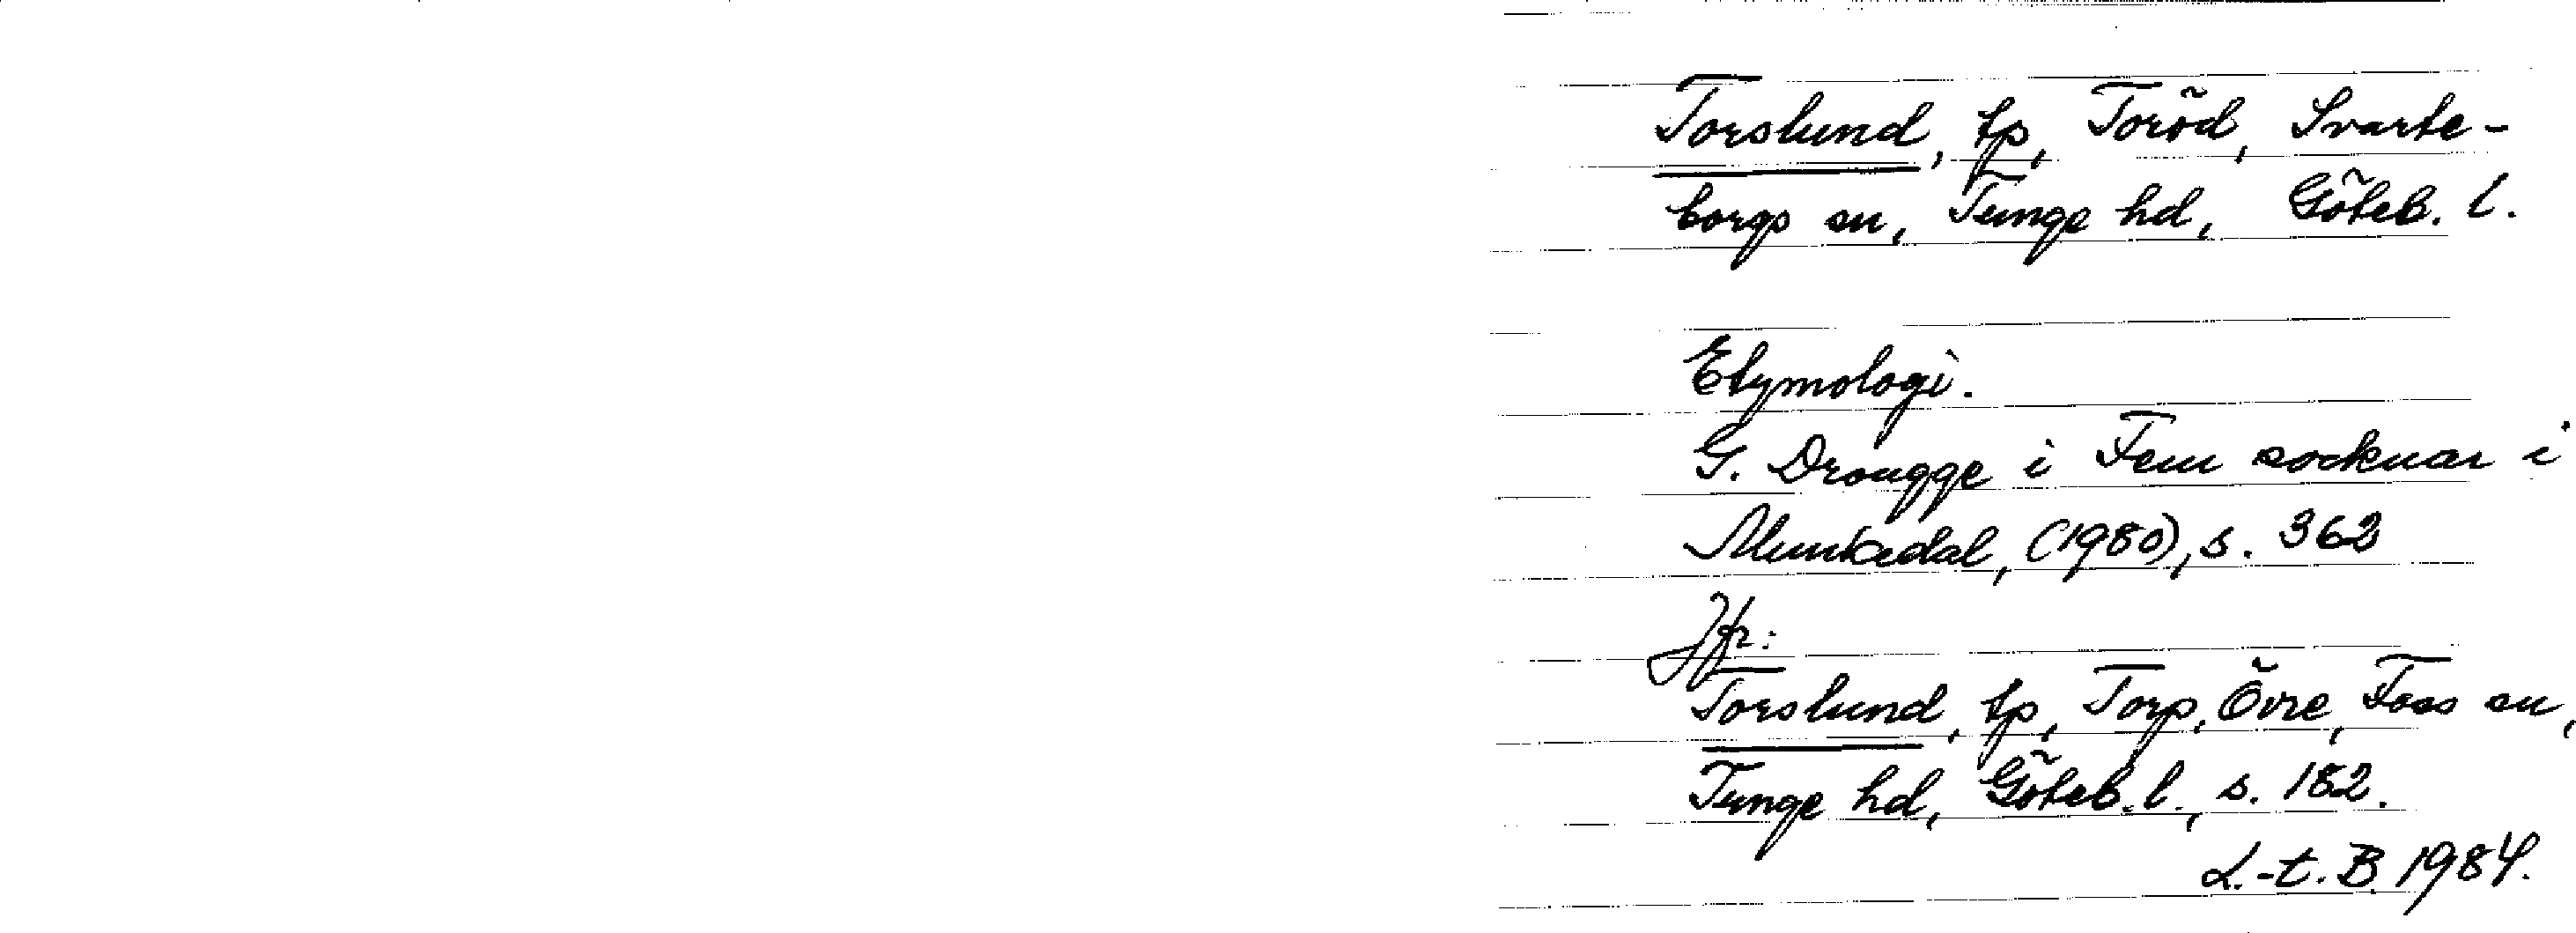 Torslund, tp, Toröd, Svarte-
borgs sn, Tunge hd, Göteb. l.
Etymologi.
G. Drougge i Fem socknar i
Munkedal, (1980), s. 362
Jfr:
Torslund, tp, Torp, Övre, Foss sn,
Tunge hd, Göteb. l., s. 182.
L.-t. B. 1984.